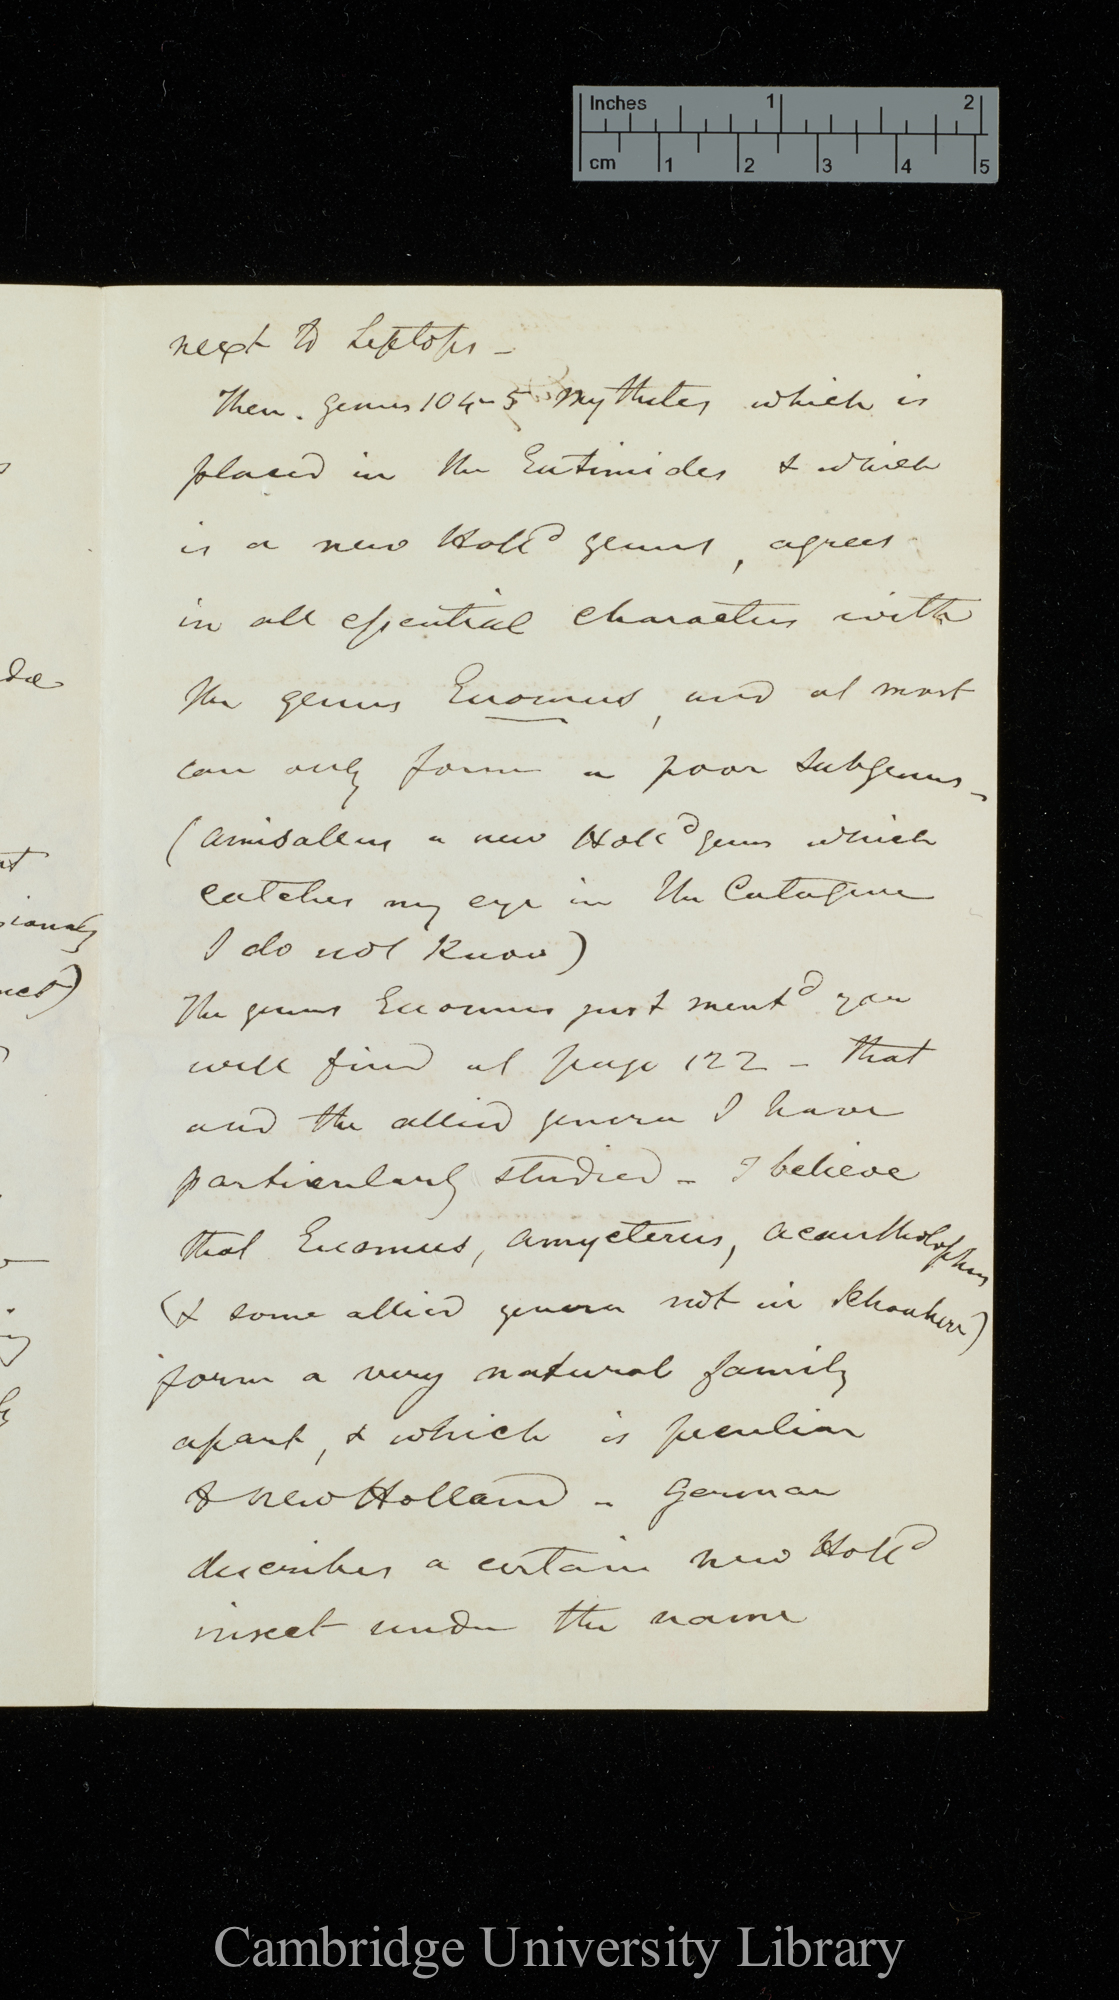 Inches 1 2
cm 1 2 3 4 5
next to Leptops –
Then. genus 104-5 Mythites which is
placed in the Entimides & which
is a new Hollᵈ genus, agrees
in all essential characters with
the genus Euomus, and at most
can only form a poor subgenus –
(Amisallus a new Hollᵈ genus which
catches my eye in the Catalogue
I do not know)
The genus Euomus just mentᵈ you
will find at page 122 – that
and the allied genera I have
particularly studied – I believe
that Euomus, Amycterus, Acantholophus
(& some allied genera not in Schonherr)
form a very natural family
apart, & which is peculiar
to New Holland – German
describes a certain new Hollᵈ
insect under the name
dæ
ionaly
Cambridge University Library